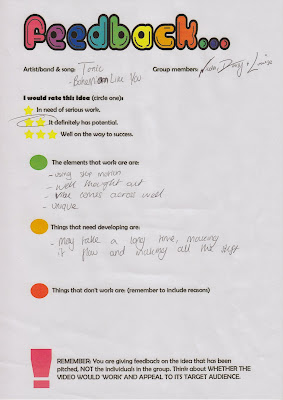 Feedback...
Artist/band & song: Tonic
- Bohemian Like You
Group members:
I would rate this idea (circle one):
In need of serious work.
It definitely has potential.
Well on the way to success.
The elements that work are are:
- using stop motion
- well thought out
- comes across well
- unique
Things that need developing are:
- may take a long time, making
it flow and making all the stuff
Things that don't work are: (remember to include reasons)
REMEMBER: You are giving feedback on the idea that has been
pitched, NOT the individuals in the group. Think about WHETHER THE
VIDEO WOULD 'WORK' AND APPEAL TO ITS TARGET AUDIENCE.